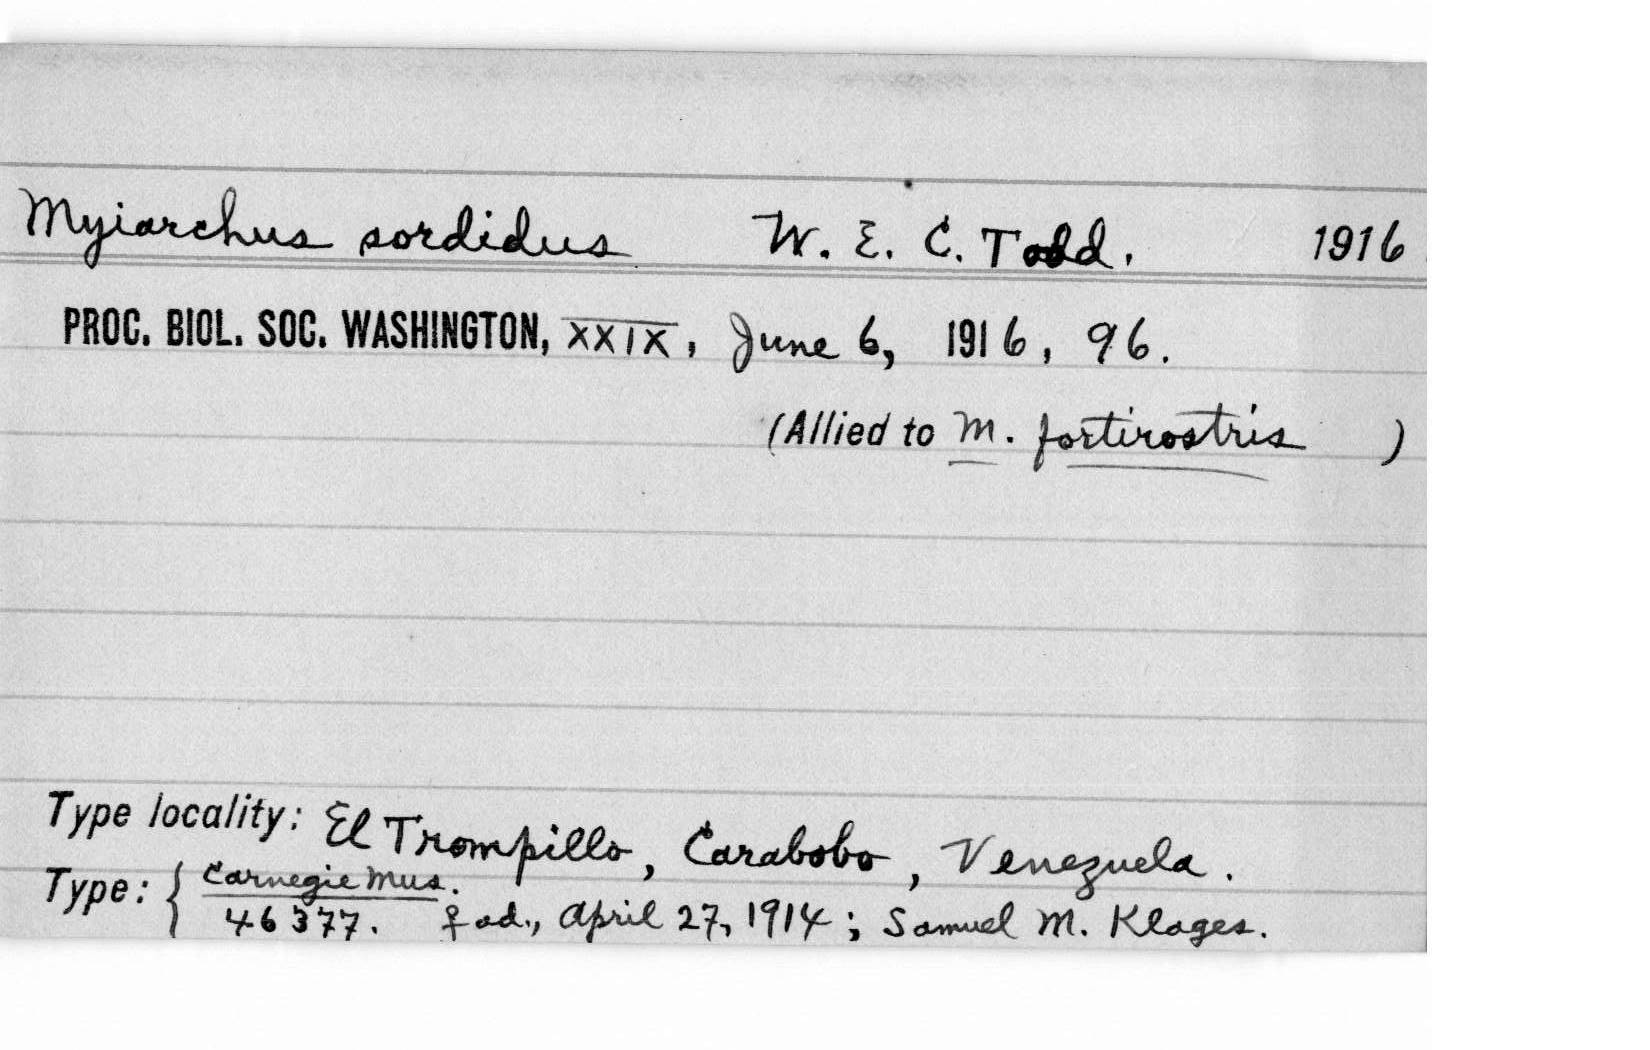 Myiarchus sordidus W. E. C. Todd. 1916
PROC. BIOL. SOC. WASHINGTON, XXIX, June 6, 1916, 96.
(Allied to M. fortirostris )
Type locality: El Trompillo, Carabobo, Venezuela.
Type: { Carnegie Mus.
46377. ♀ ad., April 27, 1914; Samuel M. Klages.